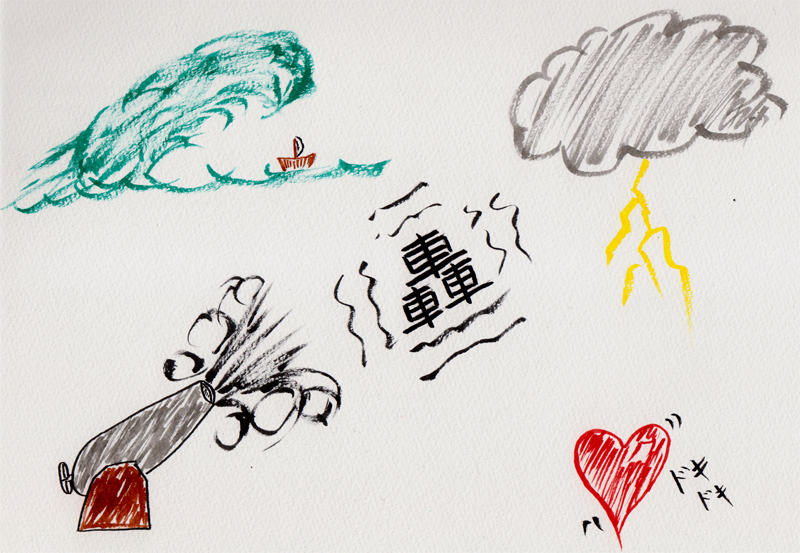 轟
ドキ
ドキ